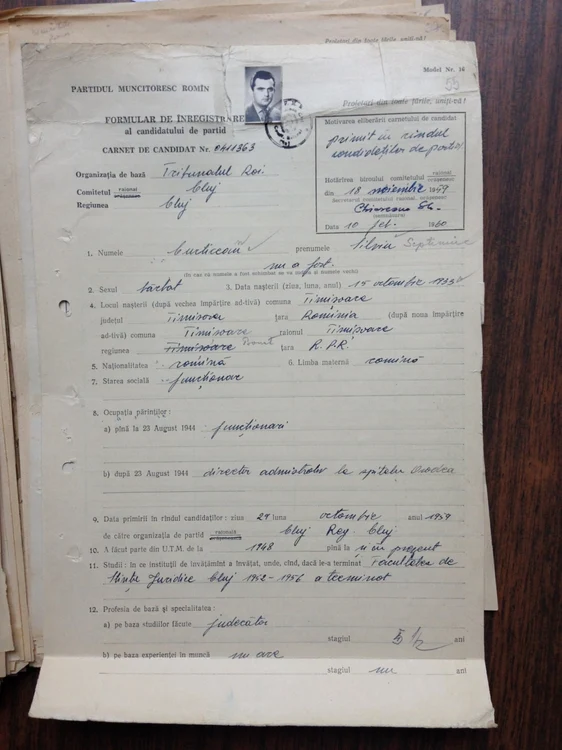 Proletari din toate țările, uniți-vă!
Model Nr. 16
55
PARTIDUL MUNCITORESC ROMÎN
Proletari din toate țările, uniți-vă!
FORMULAR DE ÎNREGISTRARE
al candidatului de partid
CARNET DE CANDIDAT Nr. 0411363
Motivarea eliberării carnetului de candidat
primit în rîndul
candidaților de partid
Organizația de bază Tribunalul Rai.
Comitetul raional Cluj
Regiunea Cluj
Hotărîrea biroului comitetului raional
din 18 noiembrie 1959
Secretarul comitetului raional
(semnătura)
Data 10 feb. 1960
1. Numele Curticeanu prenumele Silviu
nu a fost.
(în caz că numele a fost schimbat se va indica și numele vechi)
2. Sexul bărbat 3. Data nașterii (ziua, luna, anul) 15 octombrie 1933
4. Locul nașterii (după vechea împărțire ad-tivă) comuna Timișoara
județul Timișoara țara România (după noua împărțire
ad-tivă) comuna Timișoara raionul Timișoara
regiunea Timișoara Banat țara R.P.R.
5. Naționalitatea romînă 6. Limba maternă romînă
7. Starea socială funcționar
8. Ocupația părinților:
a) pînă la 23 August 1944 funcționari
b) după 23 August 1944 director administrativ la spitalul Oradea
9. Data primirii în rîndul candidaților: ziua 27 luna octombrie anul 1959
de către organizația de partid raională Cluj Reg. Cluj
10. A făcut parte din U.T.M. de la 1948 pînă la și în prezent
11. Studii: în ce instituții de învățămînt a învățat, unde, cînd, dacă le-a terminat Facultatea de
Științe Juridice Cluj 1952-1956 a terminat
12. Profesia de bază și specialitatea:
a) pe baza studiilor făcute judecător
stagiul 5 1/2 ani
b) pe baza experienței în muncă nu are
stagiul nu ani